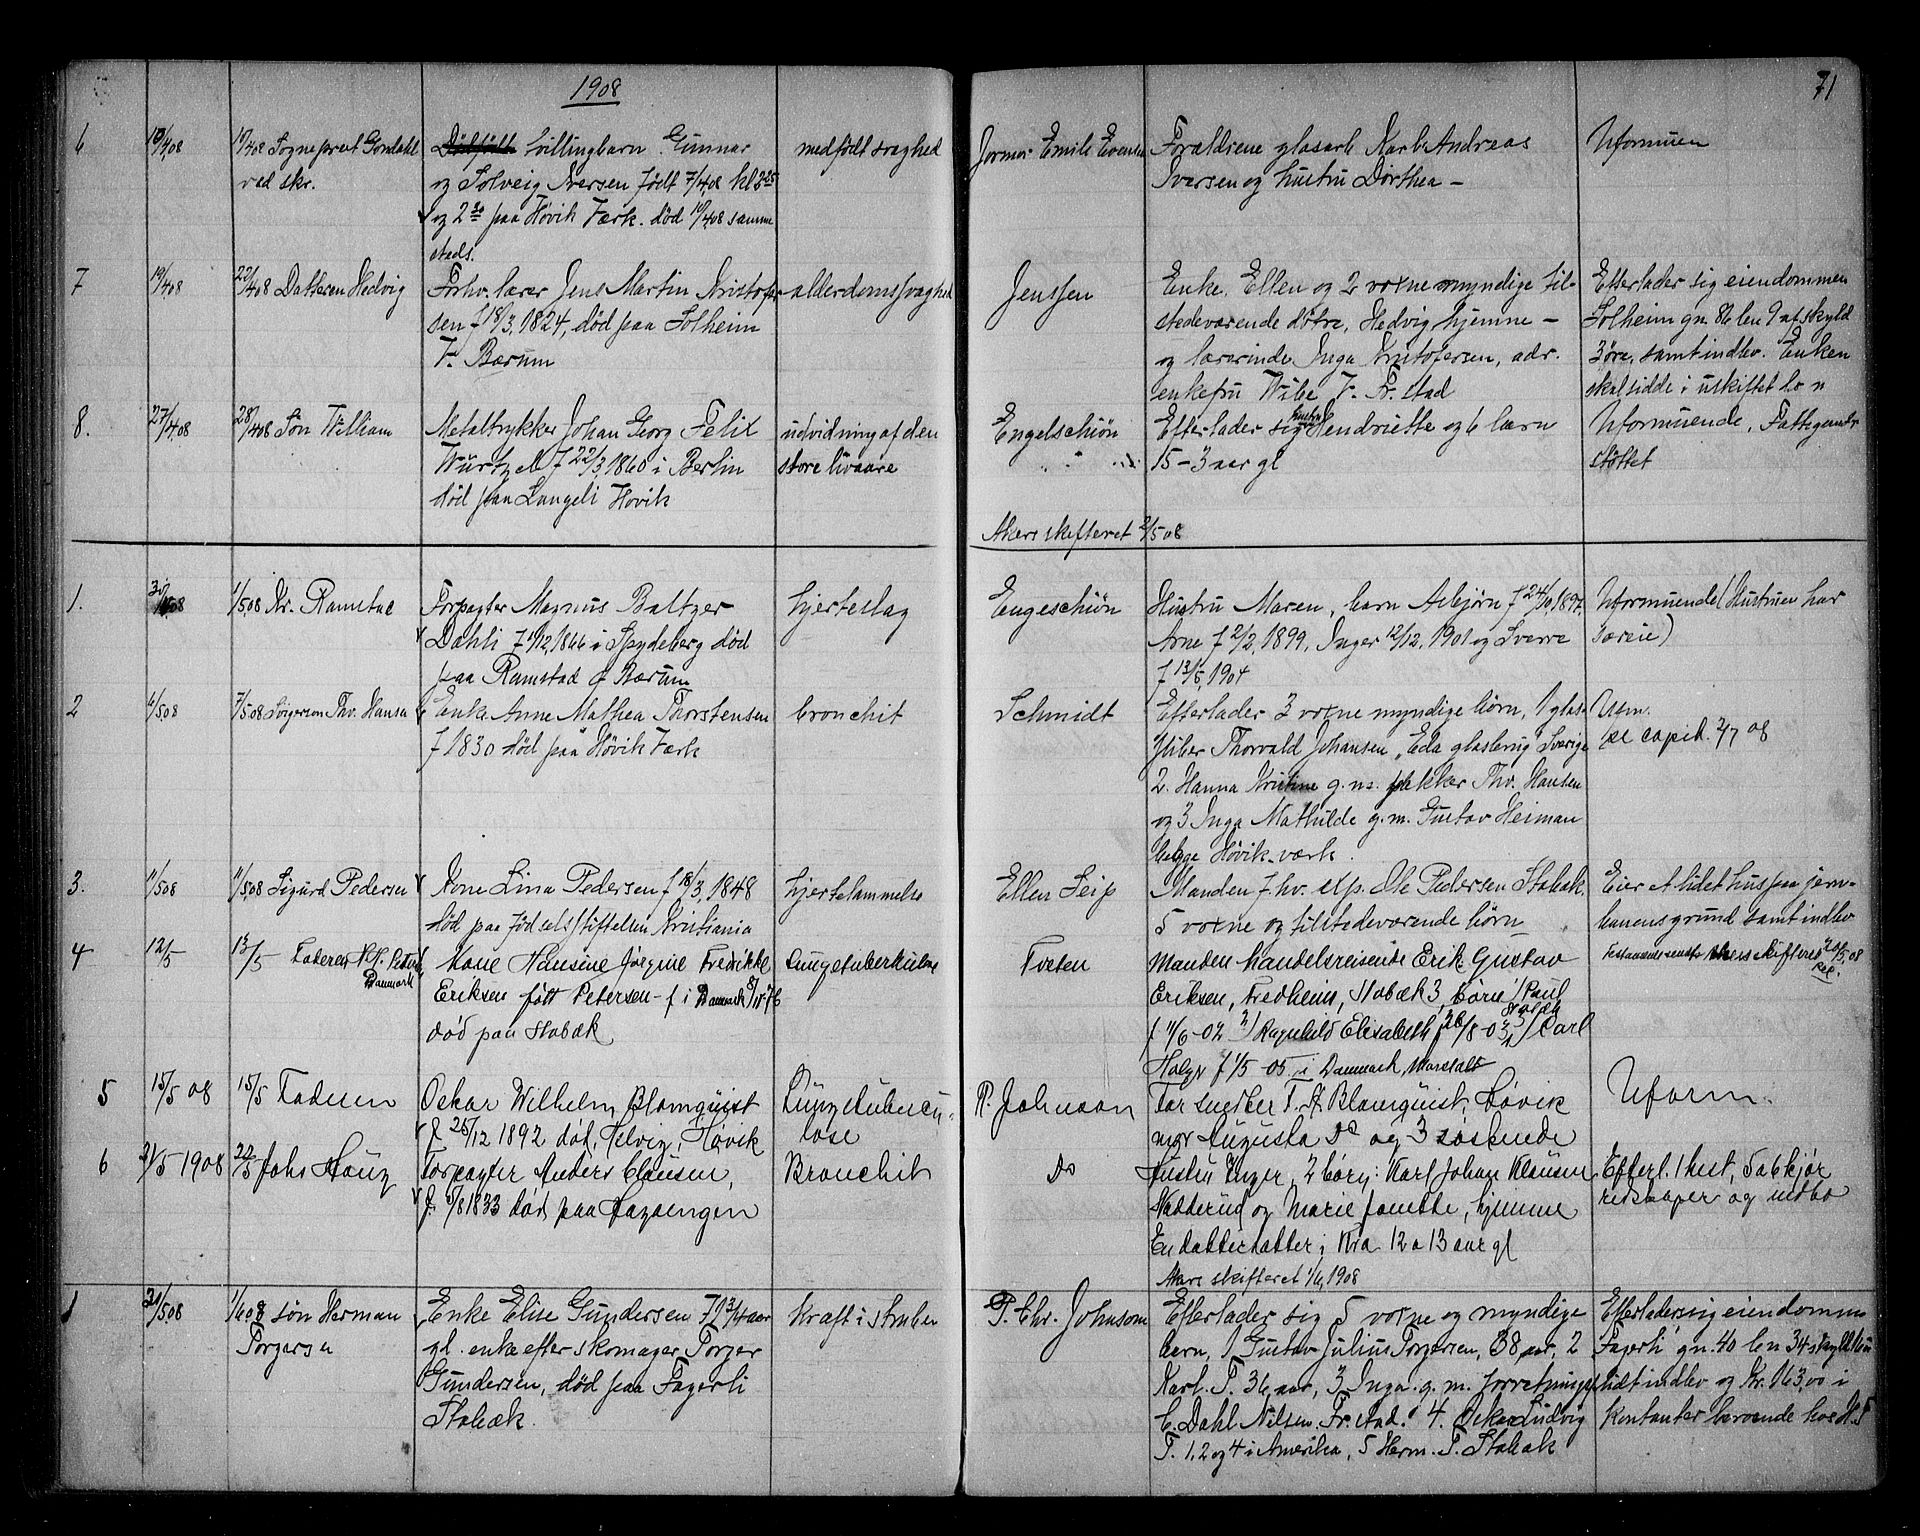 1908
71
6 10/4 08 10/4 08 Sogneprest Gordahl Dødfødt tvillingbarn Gunnar medfødt svaghed Jormor Emile Evensen Forældrene glasarb Karl Andreas Uformuen
ved skr. og Solveig Iversen født 7/4 08 kl 2 25 Iversen og hustru Dorthea –
og 2 30 paa Høvik Værk. død 10/4 08 samme
steds.
7 19/4 08 22/4 08 Datteren Hedvig Forhv. lærer Jens Martin Kristofer alderdomssvaghed Jenssen Enke Ellen og 2 voxne myndige til- Efterlader sig eiendommen
sen f 18/3, 1824, død paa Solheim stedeværende døtre, Hedvig hjemme – Solheim gn 86 bn 9 af skyld
V. Bærum og lærerinde Inga Kristofersen, adr. 3 øre, samt indbo. Enken
enkefru Wibe V. Fr. stad skal sidde i uskiftet bo
8. 27/4 08 28/4 08 Søn William Metaltrykker Johan Georg Felix udvidning af den Engelschiøn Efterlader sig hustru Hendriette og 6 barn Uformuende, Fattigunder
Würtzel f 22/3, 1860 i Berlin store livaare 15 – 3 aar gl støttet
død paa Langeli Høvik
Akers skifteret 2/5 08
1. 30/4 08 1/5 08 Kr. Ramstad Forpagter Magnus Baltzer hjerteslag Engeschiøn Hustru Maren, barn Asbjørn f 24/10, 1897. Uformuende (Hustruen har
Dahli f 1/12, 1866 i Spydeberg død Arne f 2/2, 1899, Inger 12/12, 1901 og Sverre særeie)
paa Ramstad Bærum f 13/5, 1904
2 6/5 08 7/5 08 Svigersøn Thv. Hansen Enke Anne Mathea Thorstensen bronchit Schmidt Efterlader 3 voxne myndige børn, 1 glas- Ufm.
f 1830 død paa Høvik Værk sliber Thorvald Johansen, Eda glasbrug Sverige 2/7 08
2. Hanna Kristine g.m. pakker Thv. Hansen
og 3 Inga Mathilde g.m. Gustav Heiman
begge Høvik-værk.
3. 11/5 08 11/5 08 Sigurd Pedersen Kone Lina Pedersen f 18/3, 1848 hjertelammelse Ellen Seip Manden f. hv. exp. Ole Pedersen Stabæk. Eier et lidet hus paa jern-
død paa Fødselsstiftelsen Kristiania 5 voxne og tilstedeværende børn banens grund samt indbo
4 12/5 13/5 Faderen Peter Kone Hansine Jørgine Fredrikke Lungetuberkulose Tveten Manden handelsreisende Erik Gustav Akers skifteret 20/5, 08
Danmark Eriksen født Petersen – f i Danmark 8/11-76 Eriksen, Fredheim, Stabæk 3 børn 1) Paul
død paa Stabæk f 11/6-02 2) Ragnhild Elisabeth f 26/8-03 Stabæk 3) Carl
Holger f 1/5-05 i Danmark, Marstal
5 15/5 08 15/5 Faderen Oskar Wilhelm Blomquist Lungetubercu- P. Johnson Far smedber F. A. Blomquist, Høvik Uform.
f 28/12 1892 død, Helvig, Høvik lose mor Augusta Do og 3 søskende
6 21/5 1908 22/5 Johs Haug Forpagter Anders Clausen, Bronchit Do Hustru Inger, 2 børn: Karl Johan Klausen Efterl. 1 hest, 5 a 6 kjør
f. 5/8 1833 død paa Hagaengen Nadderud og Marie Janette, hjemme redskaper og indbo
En datterdatter i Kra 12 a 13 aar gl
Akers skifteret 1/6, 1908
1 30/5 08 1/6 08 søn Herman Enke Elise Gundersen 79 3/4 aar Kræft i struben P. Chr. Johnson Efterlader sig 5 voxne og myndige Efterlader sig eiendommen
Torgersen gl. enke efter skomager Torger barn, 1 Gustav Julius Torgersen, 38 aar, 2 Fagerli gn. 40 bn 34 skyld
Gundersen, død paa Fagerli Karl T. 36 aar, 3 Inga g.m. forretnings lidt indbo og Kr. 163,00 i
Stabæk. C. Dahl Nilsen Fr. stad. 4. Oskar Ludvig kontanter beroende hos H. T
T. 1, 2 og 4 i Amerika, 5 Herm. T. Stabæk